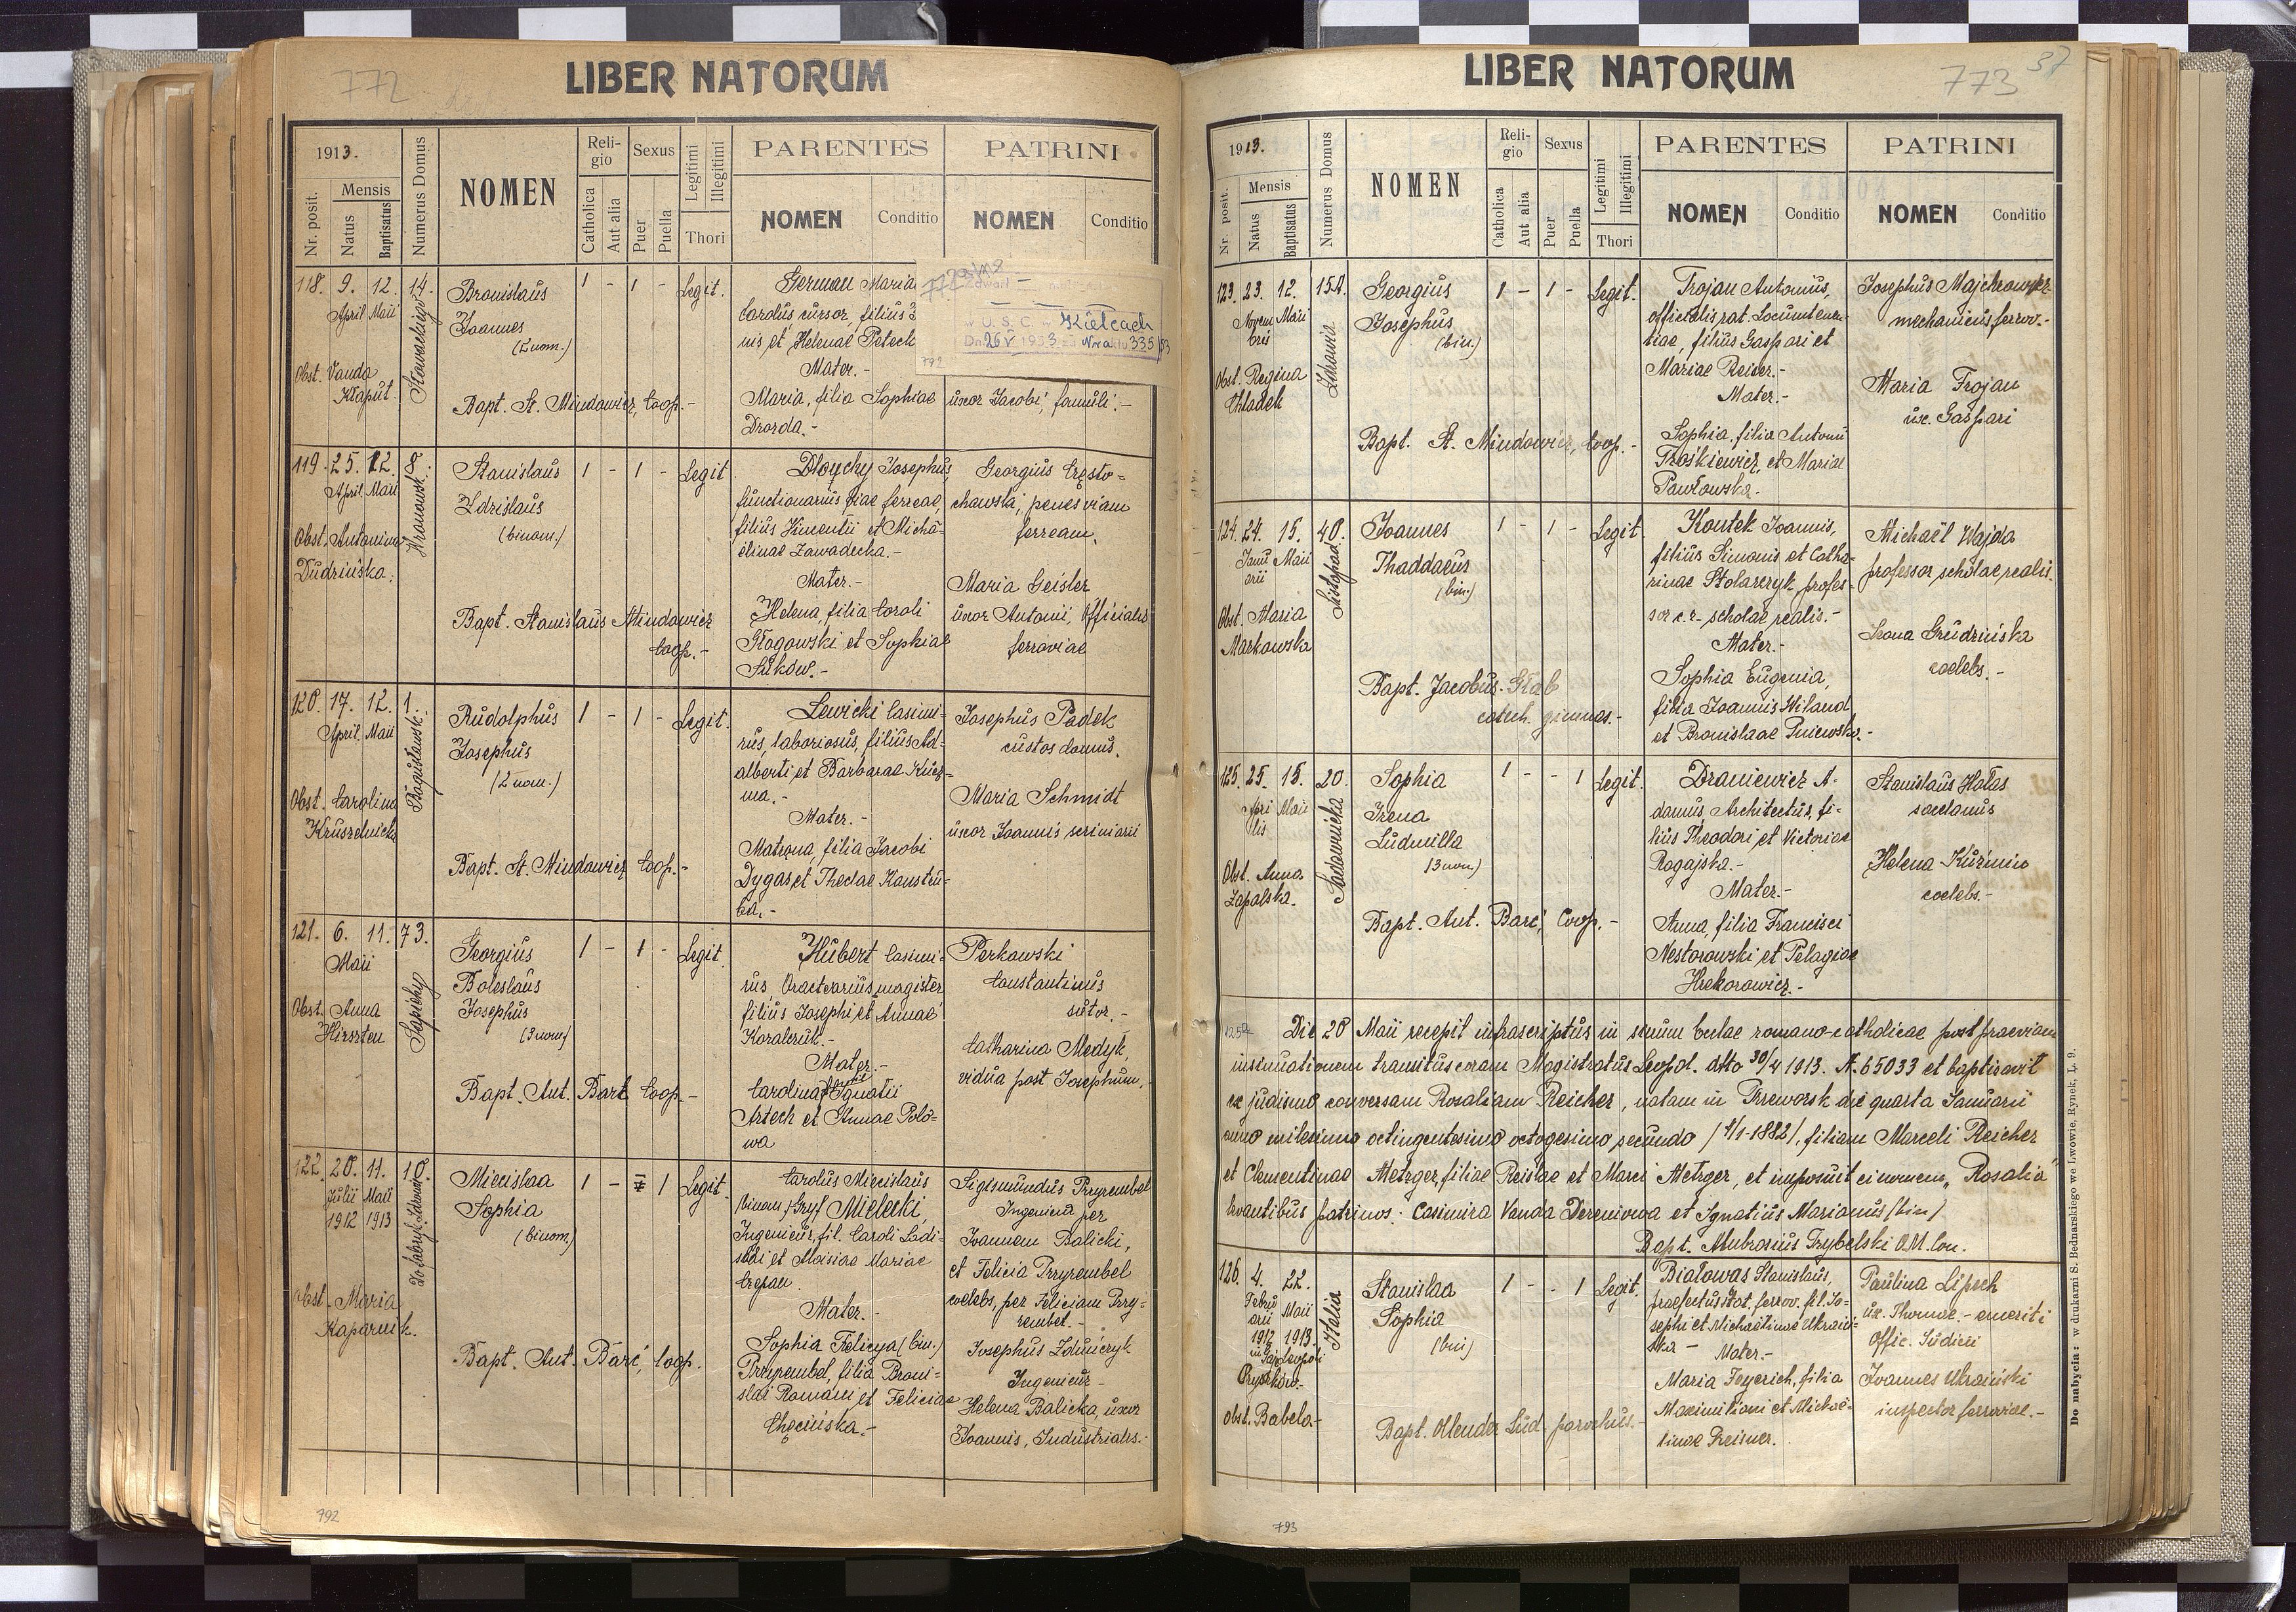 772
LIBER NATORUM
1913.
Nr. posit.
Mensis
Natus
Baptisatus
Numerus Domus
NOMEN
Religio
Catholica
Aut alia
Sexus
Puer
Puella
Legitimi
Illegitimi
Thori
PARENTES
NOMEN
Conditio
PATRINI
NOMEN
Conditio
118. 9. 12. 14.
April Maii
Obst. Vanda
Kłaput.
Bronislaus
Joannes
(2 nom.)
1 - 1 - Legit.
Bapt. St. Mindowicz, Coop.-
German Maria
Carolus cursor, filius
nis et Helenae Petech
Mater.-
Maria, filia Sophiae
Drozda.-
uxor Jacobi, famuli.-
w U. S. C. w Kielcach
Dn. 26 V 1953 Nr aktu 335/53
792
119. 25. 12. 8.
April Maii
Obst. Antonina
Dudzińska.
Stanislaus
Zdzislaus
(binom.)
1 - 1 - Legit.
Bapt. Stanislaus Mindowicz
Coop.-
Dłouchy Josephus,
functionarius viae ferreae,
filius Vincentii et Micha-
elinae Zawadecka.-
Mater.-
Helena, filia Caroli
Głogowski et Sophiae
Sukow.-
Georgius Często-
chowski, penes viam
ferream.
Maria Geisler
uxor Antonii, Officialis
ferroviae
120. 17. 12. 1.
April. Maii
Bogusławsk.
Obst. Carolina
Kruszelnicka
Rudolphus
Josephus
(2 nom.)
1 - 1 - Legit.
Bapt. St. Mindowicz Coop.-
Lewicki Casimi-
rus, laboriosus, filius Ad-
alberti et Barbarae Kuź-
ma.-
Mater.-
Matrona, filia Jacobi
Dygas et Theclae Kaustru-
ba.-
Josephus Padek
custos domus.
Maria Schmidt
uxor Joannis scriniarii
121. 6. 11. 73.
Maii
Sapiehy
Obst. Anna
Hirszten
Georgius
Boleslaus
Josephus
(3 nom)
1 - 1 - Legit.
Bapt. Ant. Bart. Coop.-
Hubert Casimi-
rus Oractvarius magister
filius Josephi et Annae
Koralczuk.-
Mater.-
Carolina, Ignatii
Artech et Annae Polo-
wa
Perkowski
Constantinus
sutor.-
Catharina Medyk,
vidua post Josephum.
122. 20. 11. 10.
Julii Maii
1912 1913
Obst. Maria
Kaparnik.
Miecislaa
Sophia
(binom.)
1 - 1 Legit.
Bapt. Ant. Barć, Coop.
Carolus Miecislaus
(binom.) Gryf Mielecki,
Ingenieur, fil. Caroli Ladi-
slai et Aloisiae Mariae
Crepan
Mater.-
Sophia Felicya (bin.)
Przyrembel, filia Broni-
slai Romani et Feliciae
Chęcińska.-
Sigismundus Przyrembel
Ingenieur per
Joannem Balicki,
et Felicia Przyrembel
coelebs, per Feliciam Przy-
rembel.-
Josephus Zduńczyk
Ingenieur-
Helena Balicka, uxor
Joannis, Industrialis.-
792
773 37
LIBER NATORUM
1913.
Nr. posit.
Mensis
Natus
Baptisatus
Numerus Domus
NOMEN
Religio
Catholica
Aut alia
Sexus
Puer
Puella
Legitimi
Illegitimi
Thori
PARENTES
NOMEN
Conditio
PATRINI
NOMEN
Conditio
123. 23. 12. 15A.
Novem Maii
bris
Obst. Regina
Chladek
Georgius
Josephus
(bin.)
1 - 1 - Legit.
Bapt. St. Mindowicz, Coop.-
Trojan Antonius,
officialis rat. Locumtenen-
tiae, filius Gaspari et
Mariae Reiser.-
Mater.-
Sophia, filia Antonii
Troskiewicz, et Mariae
Pawłowska.
Josephus Majchrowicz
mechanicus ferrov.-
Maria Trojan
ux. Gaspari
124. 24. 15. 40.
Janu Maii
arii
Listopad.
Obst. Maria
Markowska
Joannes
Thaddaeus
(bin.)
1 - 1 - Legit.
Bapt. Jacobus Głąb
catech. gimnas.-
Kontek Joannis,
filius Simonis et Catha-
rinae Stolarczyk, profes-
sor c.r. scholae realis.-
Mater.-
Sophia Eugenia,
filia Joannis Wiland
et Bronislaae Pniewska.-
Michaël Wajda
professor scholae realis.
Irena Grudzińska
coelebs.-
125. 25. 15. 20.
Apri Maii
lis
Sadownicka
Obst. Anna
Zapalska.
Sophia
Irena
Ludmilla
(3 nom)
1 - - 1 Legit.
Bapt. Ant. Barć, Coop.-
Draniewicz A-
damus, Architectus, fi-
lius Theodori et Victoriae
Rogajska.-
Mater.-
Anna, filia Francisci
Nestorowski et Pelagiae
Hrekorowicz.-
Stanislaus Hałas
sacelanus
Helena Kuźmin
coelebs.-
125a Die 28 Maii recepit infrascriptus in sinum Eccl̄ae romano-catholicae post praeviam
insinuationem transitus coram Magistratus Leopol. dtto 30/4 1913. N. 65033 et baptizavit
ex judismo conversam Rosaliam Reicher, natam in Przeworsk die quarta Januarii
anno milesimo octingentesimo octogesimo secundo (4/1-1882), filiam Marceli Reicher
et Clementinae Metzger, filiae Reislae et Marci Metzger, et imposuit ei nomen „Rosalia"
levantibus patrinos: Casimira Vanda Dereniowa et Ignatius Marianus (bin)
Bapt. Ambrosius Trybalski O.M. Con.
126. 4. 22.
Febru Maii
arii
1912 1913
Obst. Babela-
Stanislaa
Sophia
(bin)
1 - - 1 Legit.
Bapt. Ollender Lud. parochus.-
Białowas Stanislaus,
praefectus stat. ferrov. fil. Jo-
sephi et Michaelinae Ukraiń-
ska -
Mater.-
Maria Feyerich, filia
Maximiliani et Michae-
linae Preisner.
Paulina Lipech
ux. Thomae.- emeriti
Offic. Judicii
Joannes Ukraiński
inspector ferroviae.-
793
Do nabycia: w drukarni S. Bednarskiego we Lwowie, Rynek, L. 9.